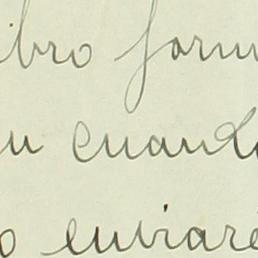 ibro form
u cuando
o enviaré